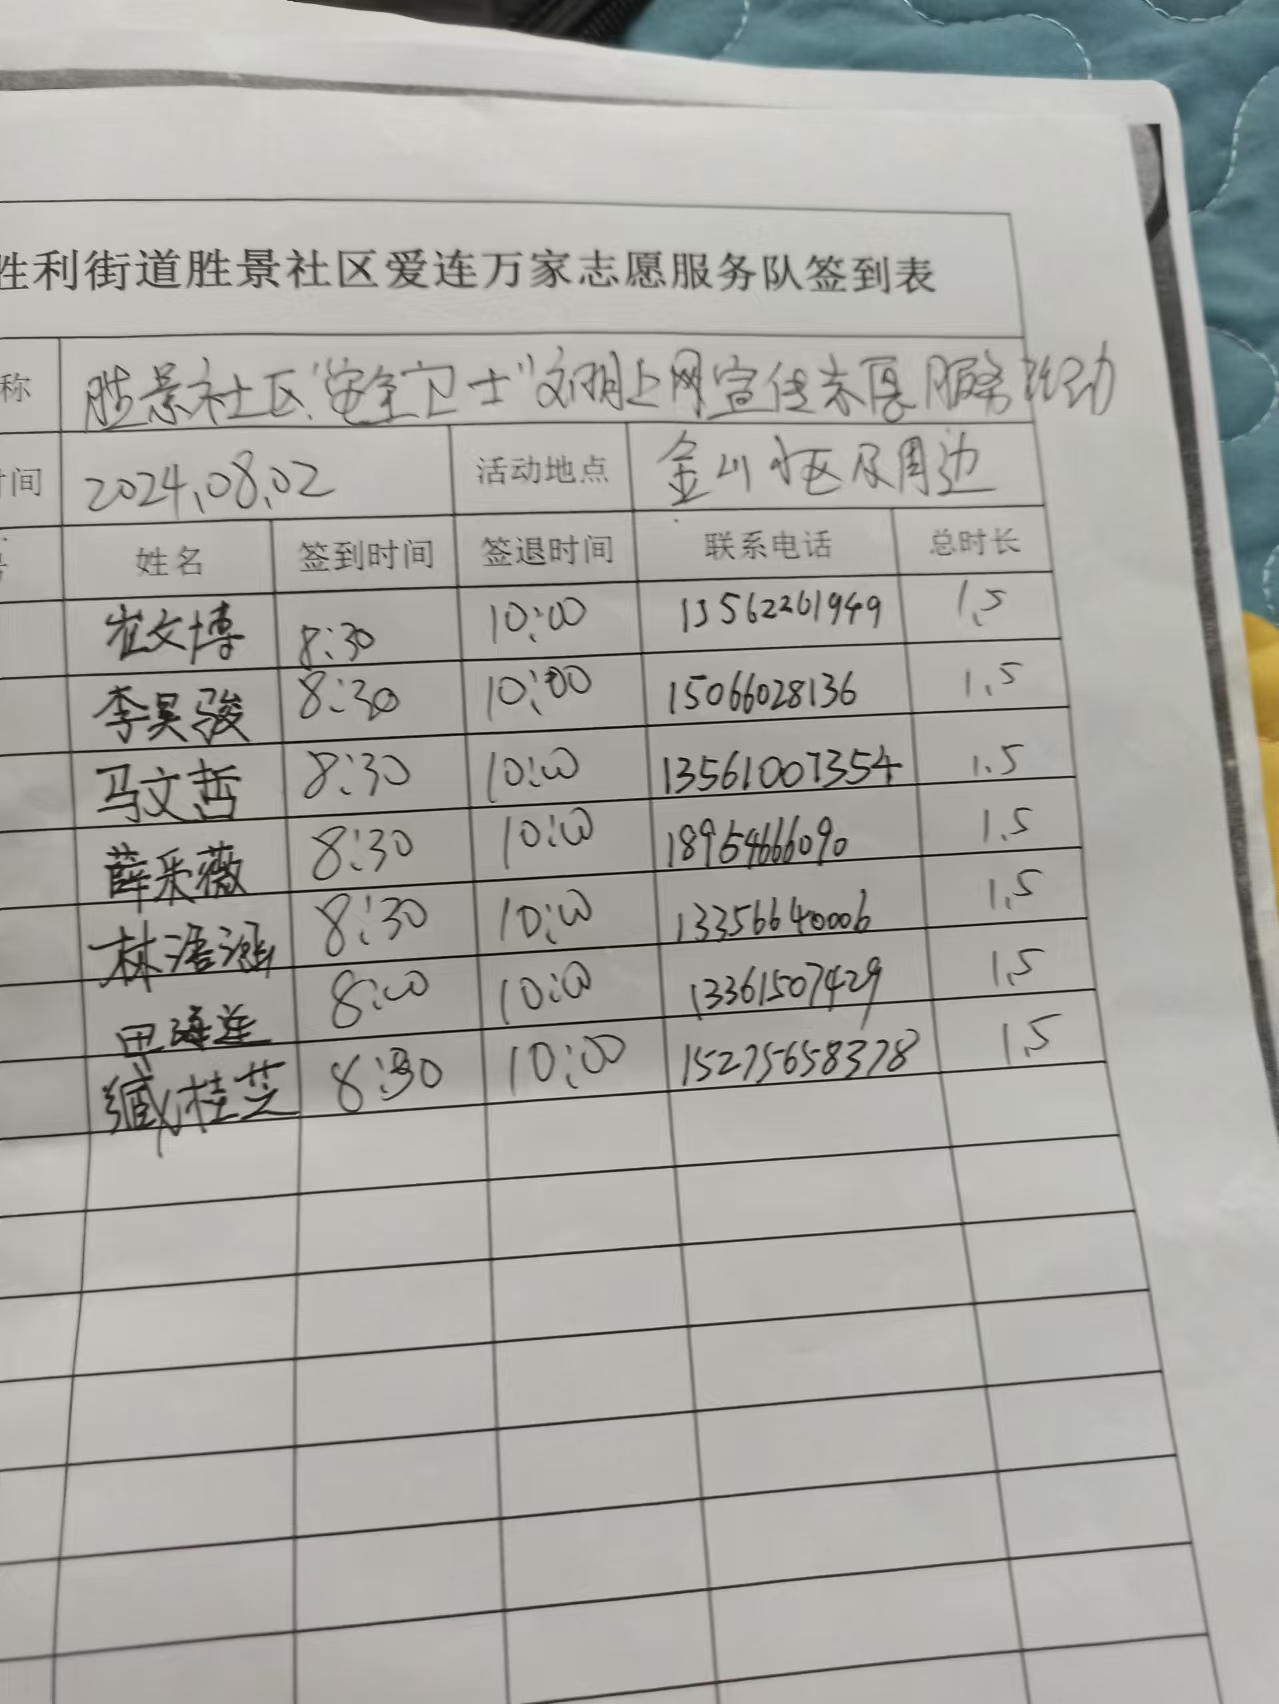 胜利街道胜景社区爱连万家志愿服务队签到表
称 胜景社区"安全卫士"文明上网宣传志愿服务活动
时间 2024.08.02 活动地点 金川小区及周边
号 姓名 签到时间 签退时间 联系电话 总时长
崔文博 8:30 10:00 13562261949 1.5
李昊骏 8:30 10:00 15066028136 1.5
马文哲 8:30 10:00 13561007354 1.5
薛采薇 8:30 10:00 18954666090 1.5
林浯涵 8:30 10:00 13356640006 1.5
田海莲 8:00 10:00 13361507429 1.5
臧桂芝 8:30 10:00 15275658378 1.5